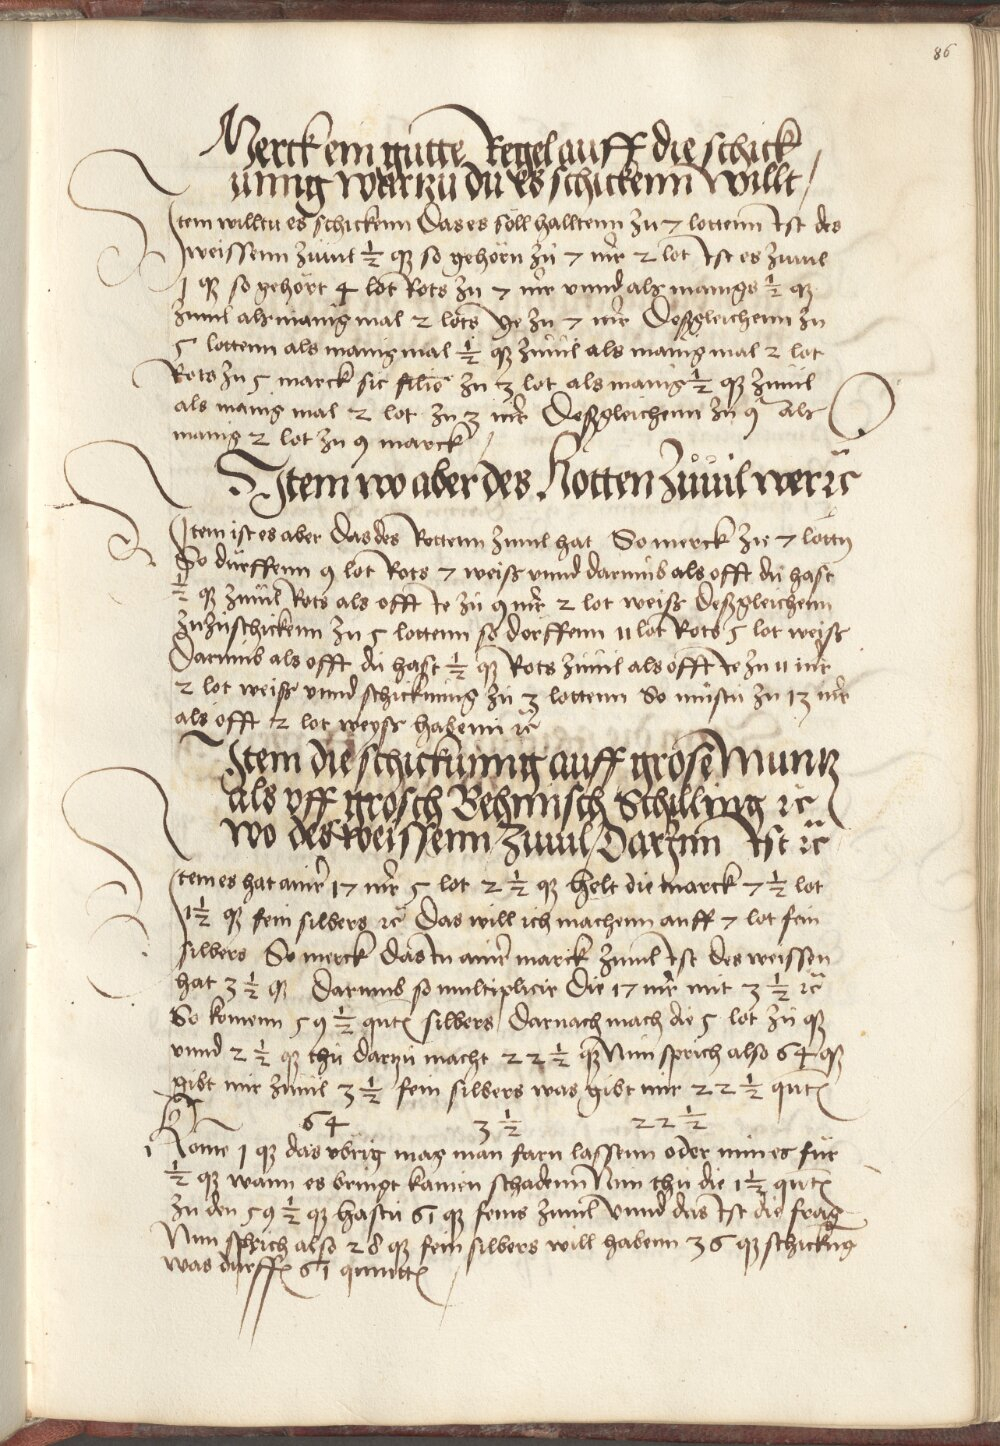 86
Merck ein gutte Regel auff die schick
ünng warzu du es schickenn willt /
Item willtu es schickenn Das es soll halltenn zu 7 lottenn Ist des
weissenn zuuil ½ q̃ so gehörn zu 7 mr̃ 2 lot Ist es zuuil
1 q̃ so gehört 4 lot Rots zu 7 mr̃ vnnd als manigs ½ q̃
zuuil als manig mal 2 lots ye zu 7 mr̃ Deßgleichenn zu
5 lottenn als manig mal ½ q̃ zuuil als manig mal 2 lot
Rots zu 5 marck sic zu 3 lot als manig ½ q̃ zuuil
als manig mal 2 lot zu 3 mr̃ Deßgleichenn zu 9 als
manig 2 lot zu 9 marck /
Item wo aber des Rotten zuuil wer ꝛc̃
Item ist es aber Das des Rottenn zuuil hat So merck zu 7 lottn̄
So dürffenn 9 lot Rots 7 weiß vnnd darumb als offt du hast
½ q̃ zuuil Rots als offt Ie zu 9 mr̃ 2 lot weiß Deßgleichenn
zuzuschickenn zu 5 lottenn so dorffenn 11 lot Rots 5 lot weiß
Darumb als offt du hast ½ q̃ Rots zuuil als offt Ie zu 11 mr̃
2 lot weiß vnnd schickunng zu 3 lottenn So mustu zu 13 mr̃
als offt 2 lot weyß habenn ꝛc̃
Item die schickunng auff grosē Muntz
als vff grosch Behmisch Schilling ꝛc̃
wo des weissenn zuuil Darzun Ist ꝛc̃
Item es hat ainr̃ 17 mr̃ 5 lot 2 ½ q̃ helt die marck 7 ½ lot
1 ½ q̃ fein silbers ꝛc̃ Das will ich machenn auff 7 lot fein
silbers So merck Das In ainr̃ marck zuuil Ist des weissen
hat 3 ½ q̃ Darumb so multiplicir Die 17 mr̃ mit 3 ½ ꝛc̃
So komenn 59 ½ qutñ silbers Darnach mach die 5 lot zu q̃
vnnd 2 ½ q̃ thu darzu macht 22 ½ q̃ Nun sprich also 64 q̃
gibt mir zuuil 3 ½ fein silbers was gibt mir 22 ½ qutñ
64 3 ½ 22 ½
1 Kome 1 q̃ das vbrig mag man farn lassenn oder nim es für
½ q̃ wann es bringt kainen schadenn Nun thu die 1 ½ qutñ
zu den 59 ½ q̃ hastu 61 q̃ feins zuuil Vnnd das Ist die frag
Nun sprich also 28 q̃ fein silbers will habenn 36 q̃ schickūg
was durffñ 61 quinttñ